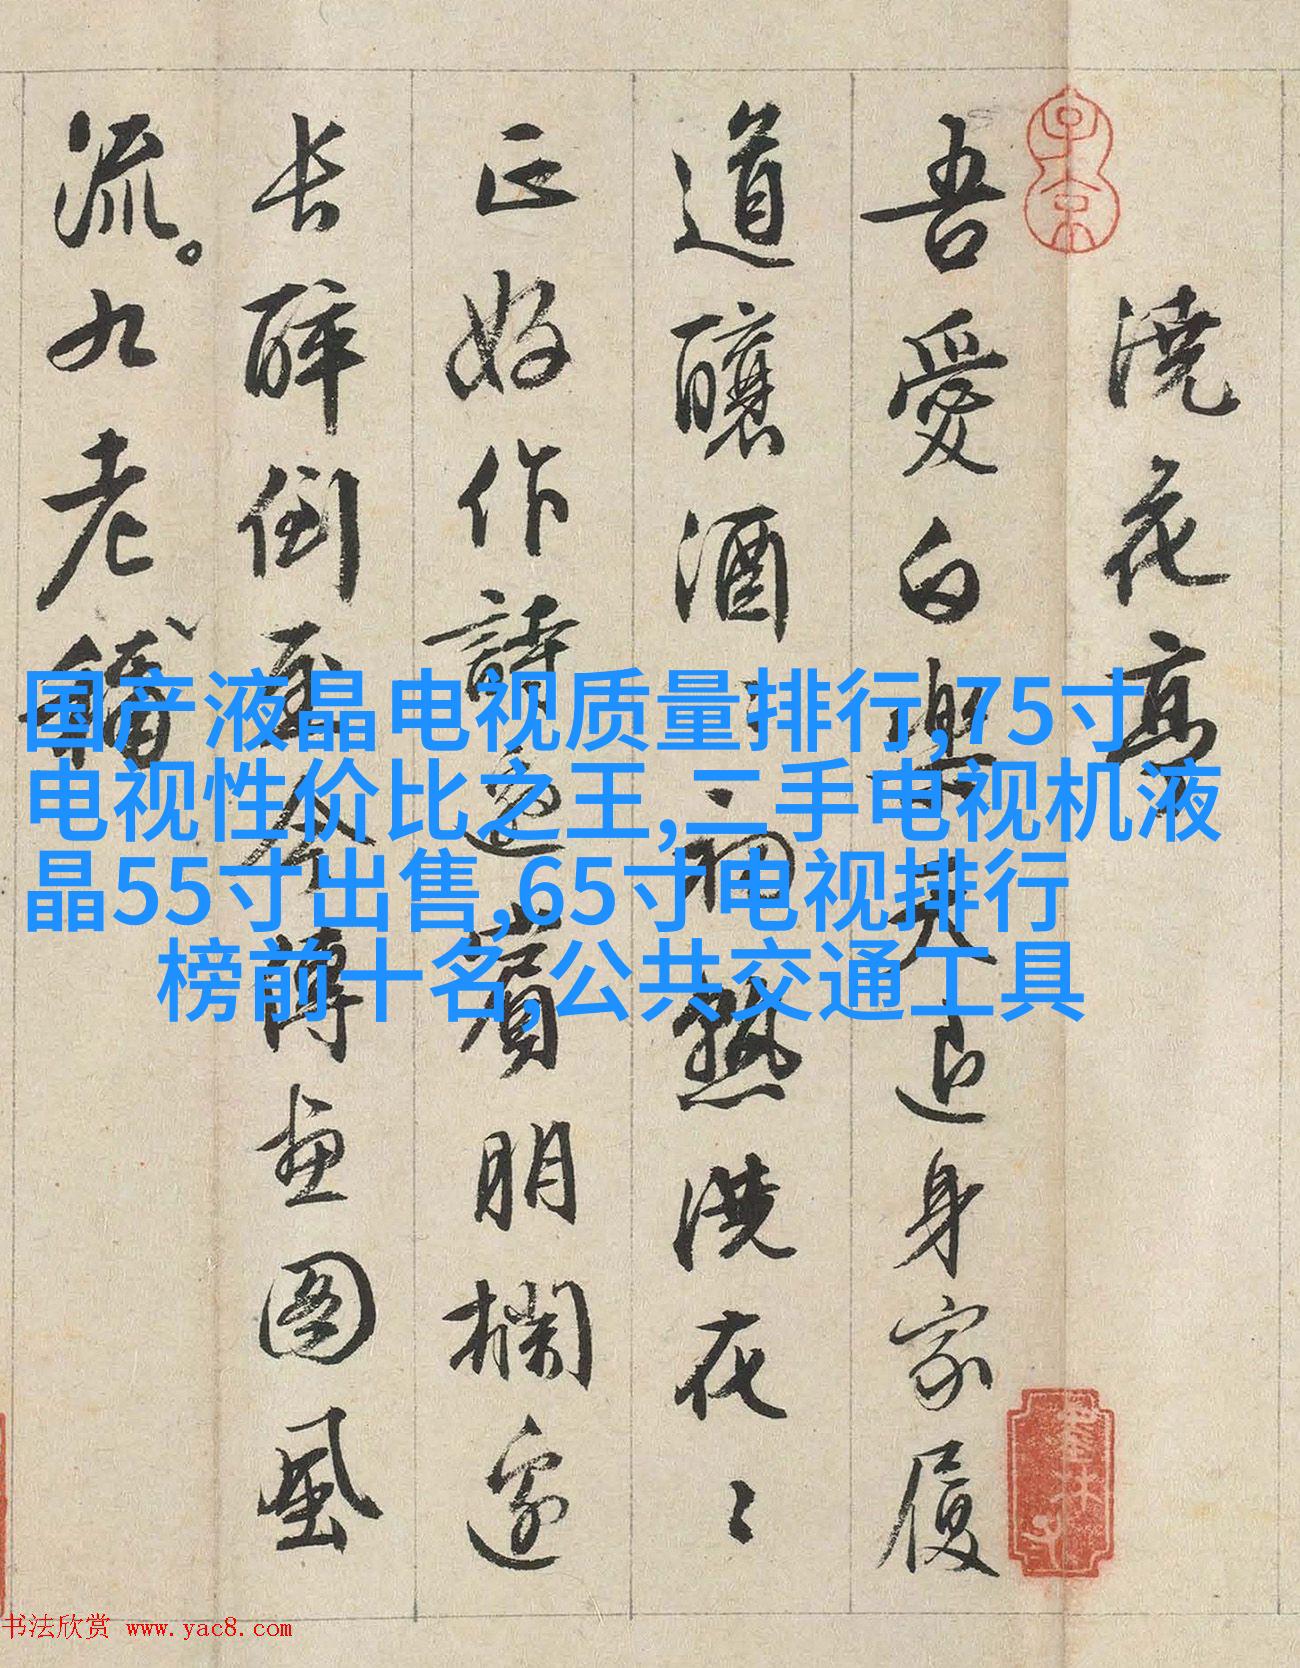 澆花亭
吾愛白樂天退身家履
道釀酒〻初熟澆花〻
正好作詩邀賓朋欄邊
長醉倒至今傳畫圖風
流。九老稱
国产液晶电视质量排行,75寸
电视性价比之王,二手电视机液
晶55寸出售,65寸电视排行
榜前十名,公共交通工具
书法欣赏 www.yac8.com